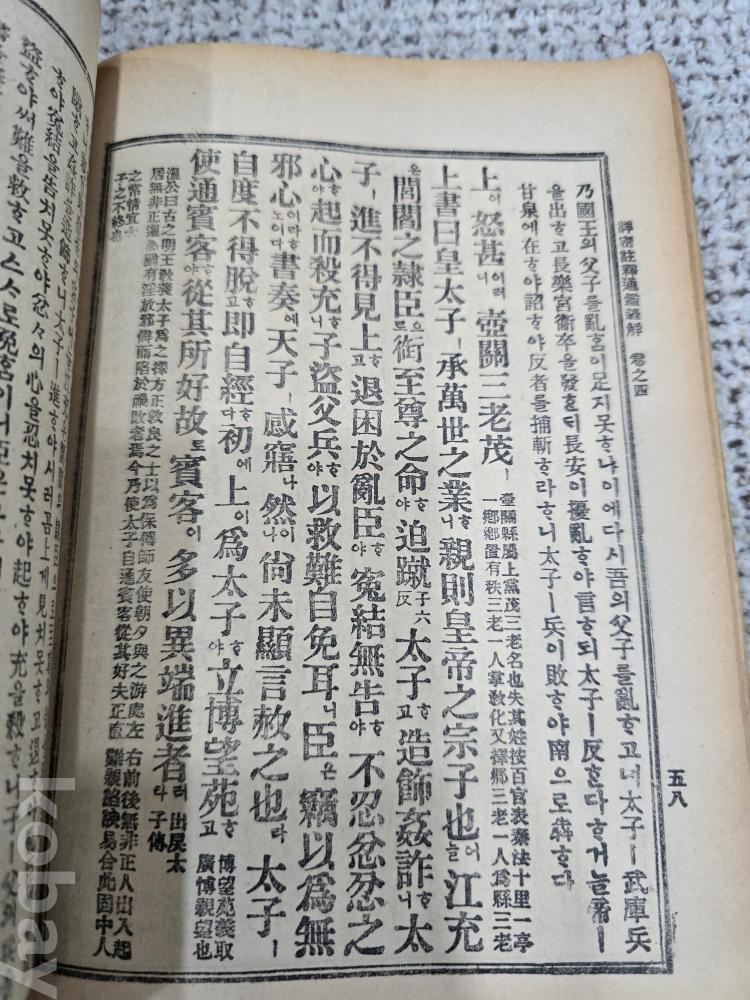 詳密註釋通鑑諺解 卷之四
五八
乃國王의父子를亂홈이足지못ᄒᆞ냐이에다시吾의父子를亂ᄒᆞ고녀太子ㅣ武庫兵
을出ᄒᆞ고長樂宮衛卒을發ᄒᆞᄃᆡ長安이擾亂ᄒᆞ야言ᄒᆞ되太子ㅣ反ᄒᆞᆫ다ᄒᆞ거늘帝ㅣ
甘泉에在ᄒᆞ야詔ᄒᆞ야反者를捕斬ᄒᆞ라ᄒᆞ니太子ㅣ兵이敗ᄒᆞ야南으로犇ᄒᆞ다
上이怒甚이러니壺關三老茂ㅣ 壺關縣屬上黨茂三老名也失其姓按百官表秦法十里一亭
一鄕鄕置有秩三老一人掌敎化又擇鄕三老一人爲縣三老
上書曰皇太子ㅣ承萬世之業ᄒᆞ니親則皇帝之宗子也ㅣ어늘江充
은閭閻之隸臣으로銜至尊之命ᄒᆞ야迫蹴子六反太子ᄒᆞ고造飾姦詐ᄒᆞ니太
子ㅣ進不得見上ᄒᆞ고退困於亂臣ᄒᆞ야寃結無告ᄒᆞ야不忍忿忿之
心ᄒᆞ야起而殺充ᄒᆞ니子盜父兵ᄒᆞ야以救難自免耳니臣은竊以爲無
邪心이라ᄒᆞ노이다書奏에天子ㅣ感寤나然이나尙未顯言赦之也라太子ㅣ
自度不得脫ᄒᆞ고卽自經ᄒᆞ다初에上이爲太子ᄒᆞ야立博望苑ᄒᆞ고 博望苑義取
廣博觀望也
使通賓客ᄒᆞ야從其所好故로賓客이多以異端進者ㅣ러라 出戾太
子傳
溫公曰古之明王敎養太子爲之擇方正敦良之士以爲保傅師友使朝夕與之游處左右前後無非正人出入起
居無非正道然猶有淫放邪僻而陷於禍敗者焉今乃使太子自通賓客從其所好夫正直難親諂諛易合此固中人
之常情宜太
子之不終也
ᄒᆞ야寃結을告치못ᄒᆞ야忿忿의心을忍치못ᄒᆞ야起ᄒᆞ야充을殺ᄒᆞ니子ㅣ
盜ᄒᆞ야써難을救ᄒᆞ고스스로免홈이니臣은
kobay